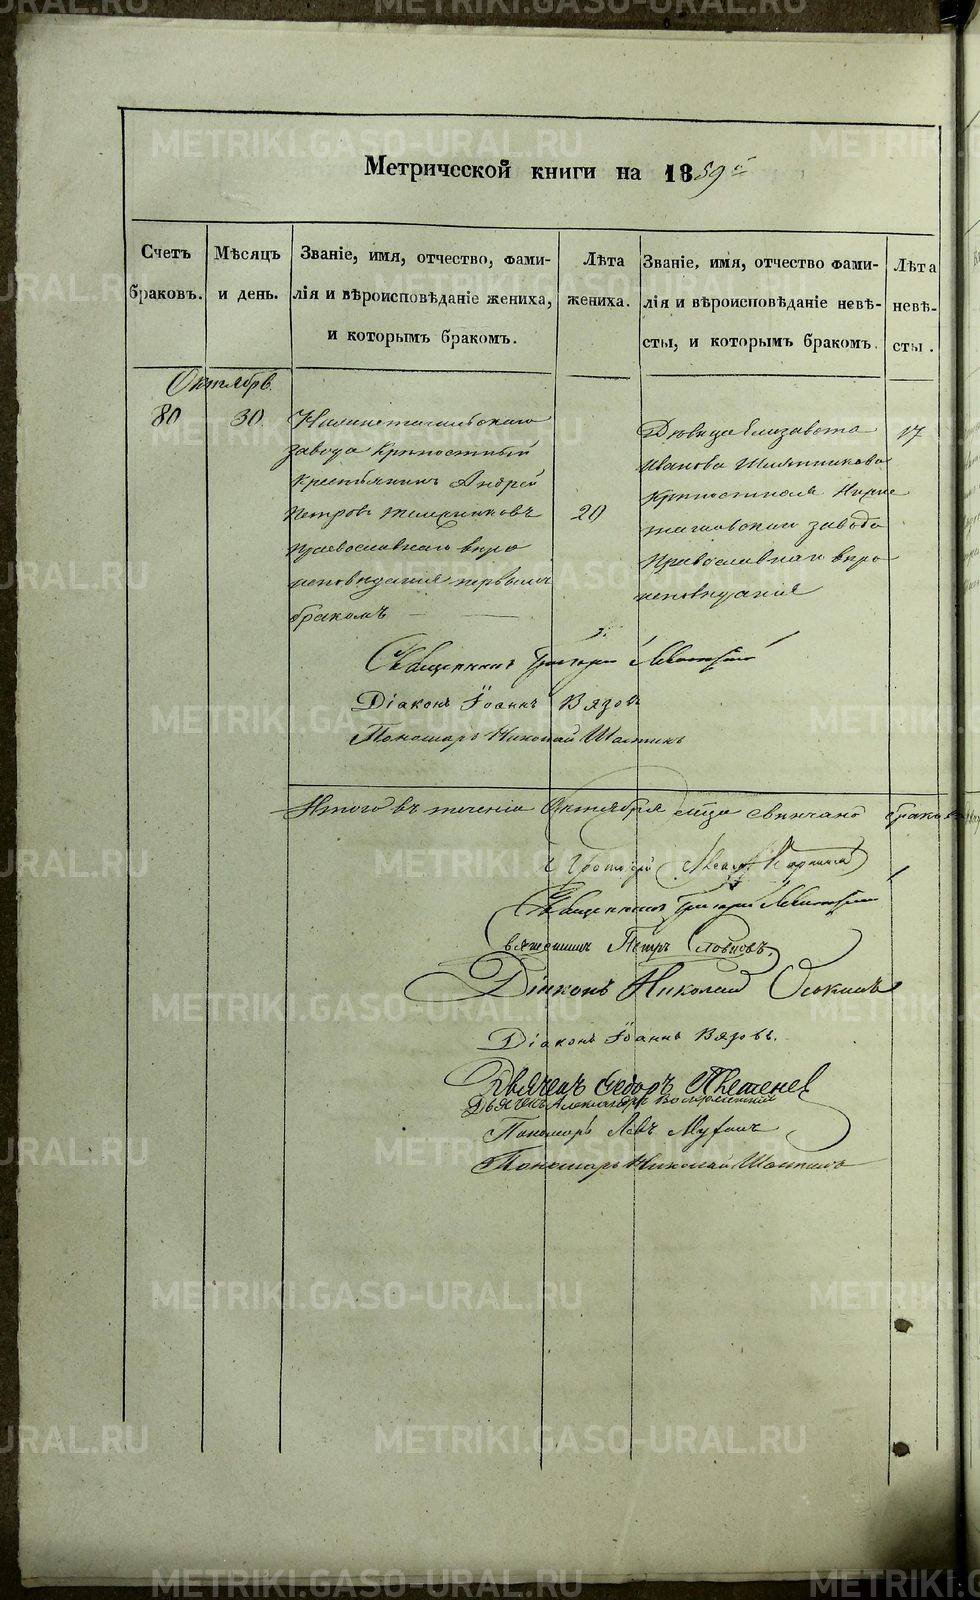 METRIKI.GASO-URAL.RU
Метрической книги на 1859й
Счетъ браковъ.
Мѣсяцъ и день.
Званіе, имя, отчество, фами-
лія и вѣроисповѣданіе жениха,
и которымъ бракомъ.
Лѣта
жениха.
Званіе, имя, отчество фами-
лія и вѣроисповѣданіе невѣ-
сты, и которымъ бракомъ.
Лѣта
невѣ-
сты.
Октябрь.
80
30.
завода Крѣпостный
крестьянинъ Андрей
Петровъ
Православнаго вѣро
исповѣданія первымъ
бракомъ
20
Дѣвица Елизавета
Иванова
Нижне
тагильскаго завода
Православнаго вѣро
исповѣданія
17
Священникъ Григорій Левитскій
Діаконъ Іоаннъ Вязовъ
Пономарь Николай
Итого въ теченіи Октября мѣца свѣнчано браковъ
Священникъ Григорій Левитскій
Священникъ Петръ Словцовъ.
Діаконъ Николай
Діаконъ Іоаннъ Вязовъ.
Дьячекъ Ѳедоръ
Дьячекъ Александръ Воскресенскій
Пономарь Левъ
Пономарь Николай